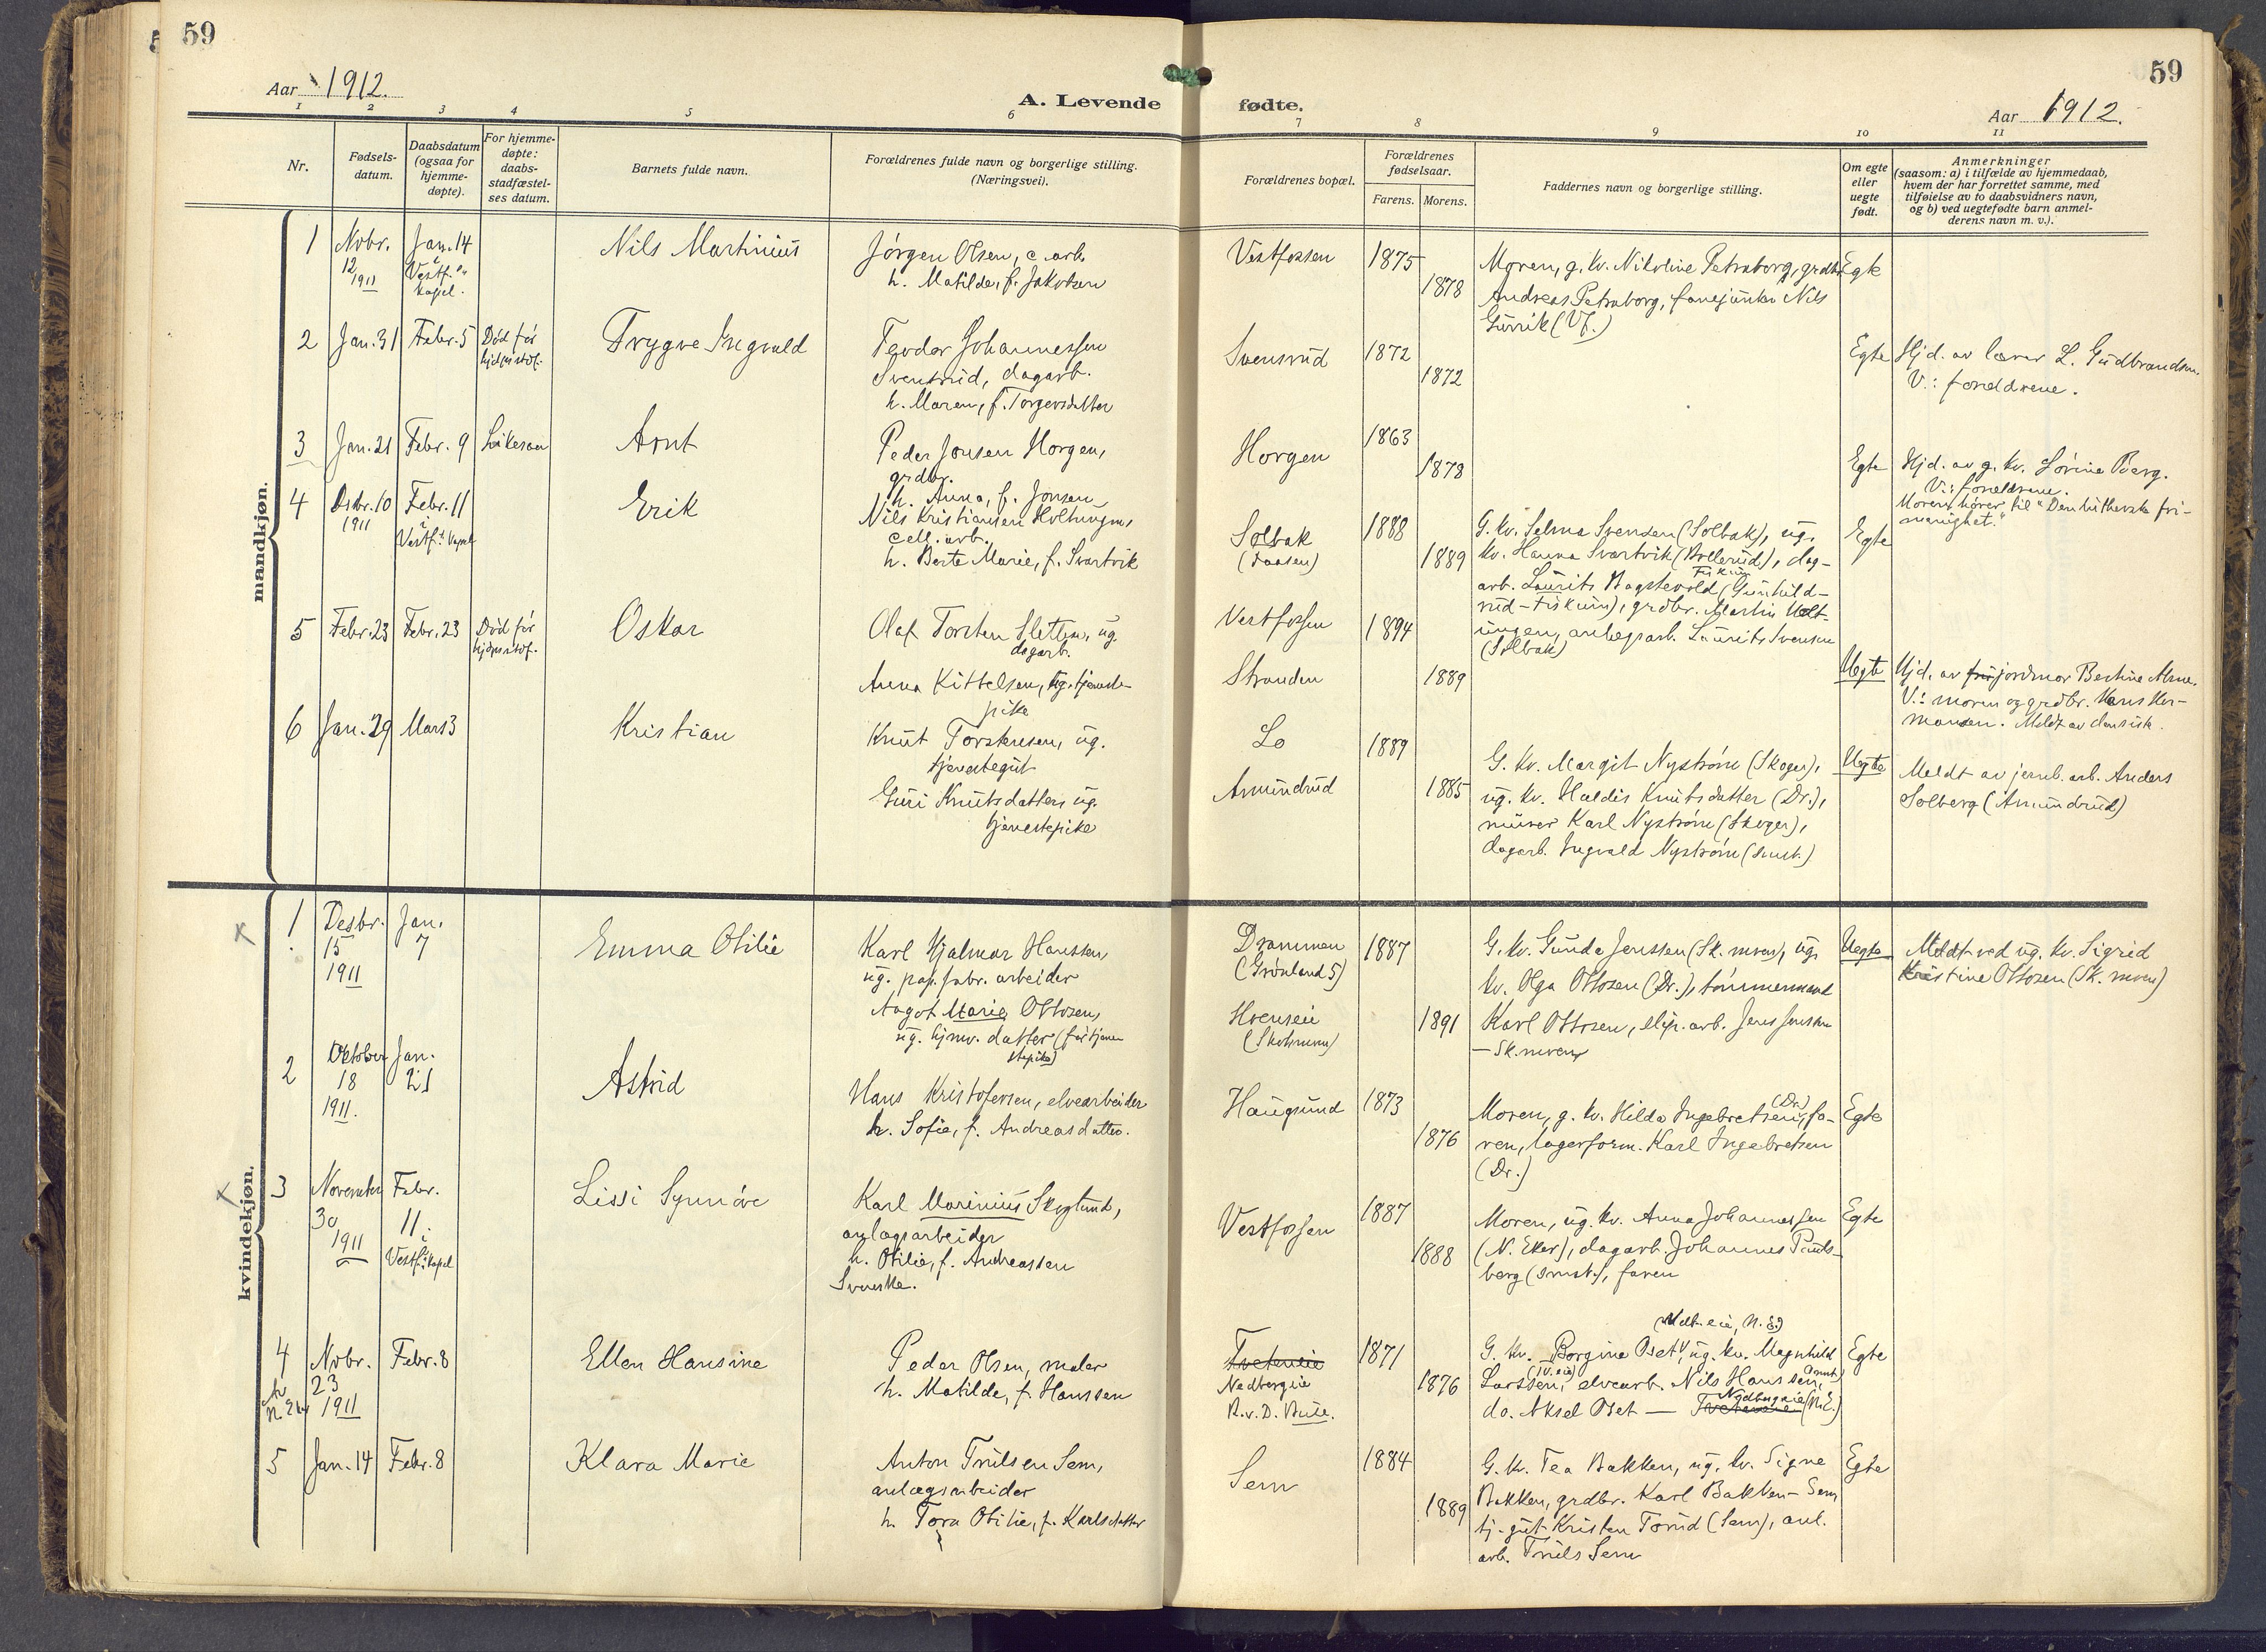 59
59
Aar 1912.
A. Levende fødte.
Aar 1912.
1 2 3 4 5 6 7 8 9 10 11
Nr.
Fødsels-
datum.
Daabsdatum
(ogsaa for
hjemme-
døpte).
For hjemme-
døpte:
daabs-
stadfæstel-
ses datum.
Barnets fulde navn.
Forældrenes fulde navn og borgerlige stilling.
(Næringsvei).
Forældrenes bopæl.
Forældrenes
fødselsaar.
Farens. Morens.
Faddernes navn og borgerlige stilling.
Om egte
eller
uegte
født.
Anmerkninger
(saasom: a) i tilfælde av hjemmedaab,
hvem der har forrettet samme, med
tilføielse av to daabsvidners navn,
og b) ved uegtefødte barn anmel-
derens navn m. v.).
mandkjøn.
1
Nvbr.
12
1911
Jan. 14
i
Vestf.
kapel.
Nils Martinius
Jørgen Olsen, c. arb.
h. Matilde, f. Jakobsen
Vestfossen
1875
1878
Moren, g. kv. Nikoline Petraborg, grdbr.
Andreas Petraborg, fanejunker Nils
Gurrik (Vf.)
Egte
2
Jan. 31
Febr. 5
Død før
hjdpsstadf.
Trygve Ingvald
Teodor Johannessen
Svensrud, dagarb.
h. Maren, f. Torgersdatter
Svensrud
1872
1872
Egte
Hjd. av lærer L. Gudbrandsen.
V.: forældrene.
3
Jan. 21
Febr. 9
Likesaa
Arnt
Peder Jonsen Horgen,
grdbr.
h. Anna, f. Jonsen
Horgen
1863
1878
Egte
Hjd. av g. kv. Lovine Berg.
V.: forældrene.
Moren hører til "Den lutherske fri-
menighet."
4
Dsbr. 10
1911
Febr. 11
i
Vestf. kapel
Erik
Nils Kristiansen Holtungen,
cell. arb.
h. Berte Marie, f. Svartvik
Solbak
(Daasen)
1888
1889
G. kv. Selma Svensen (Solbak), ug.
kv. Hanna Svartvik (Bollerud), dag-
arb. Laurits Bagstevold (Gunhild-
rud - Fiskum), grdbr. Martin Holt-
ungen, anlegsarb. Laurits Svensen
(Solbak)
Egte
5
Febr. 23
Febr. 23
Død før
hjdpsstadf.
Oskar
Olaf Torsten Sletten, ug.
dagarb.
Anna Kittelsen, ug. tjeneste-
pike
Vestfossen
Stranden
1894
1889
Uegte
Hjd. av jordmor Bertine Alme.
V.: moren og grdbr. Hans Her-
mansen. Meldt av densisk.
6
Jan. 29
Mars 3
Kristian
Knut Torstensen, ug.
tjenestegut
Guri Knutsdatter, ug.
tjenestepike
Lo
Amundrud
1889
1885
G. kv. Margit Nystrøm (Skoger),
ug. kv. Haldis Knutsdatter (Dr.),
murer Karl Nystrøm (Skoger),
dagarb. Ingvald Nystrøm (smst.)
Uegte
Meldt av jernb. arb. Anders
Solberg (Amundrud)
kvindekjøn.
1
Desbr.
15
1911
Jan.
7
Emma Otilie
Karl Hjalmar Hanssen,
ug. pap. fabr. arbeider
Aagot Marie Ottosen,
ug. hjmv. datter (før tjene-
stepike)
Drammen
(Grønland 5)
Hvenseie
1887
1891
G. kv. Gunda Jenssen (Sk. moen), ug.
kv. Olga Ottosen (Dr.), tømmermand
Karl Ottosen, slip. arb. Jens Jenssen
- Sk. moen
Uegte
Meldt ved ug. kv. Sigrid
Kristine Ottosen (Sk. moen)
2
Oktober
18
1911.
Jan.
21
Astrid
Hans Kristofersen, elvearbeider
h. Sofie, f. Andreasdatter.
Haugsund
1873
1876
Moren, g. kv. Hilda Ingebretsen (Dr.), fa-
ren, lagerform. Karl Ingebretsen
(Dr.)
Egte
3
November
30
1911
Febr.
11
i
Vestf. kapel
Lissi Synnøve
Karl Marinius Skoglund,
anlægsarbeider
h. Otilie, f. Andreassen
Svenske.
Vestfossen
1887
1888
Moren, ug. kv. Anna Johannessen
(N. Eker), dagarb. Johannes Pauls-
berg (smst.), faren
Egte
4
N. Eker
Nvbr.
23
1911
Febr. 8
Ellen Hansine
Peder Olsen, maler
h. Matilde, f. Hanssen
Tveteneie
Nedbergeie
1871
1876
G. kv. Borgine Oset, ug. kv. Magnhild
Larssen, elvearb. Nils Hanssen,
do. Aksel Oset - Nedbergeie (N. E.)
Egte
5
Jan. 14
Febr. 8
Klara Marie
Anton Trulsen Sem,
anlægsarbeider
h. Tora Otilie, f. Karlsdatter
Sem
1884
1889
G. kv. Tea Bakken, ug. kv. Signe
Bakken, grdbr. Karl Bakken - Sem
tj. gut Kristen Torud (Sem), anl.
arb. Truls Sem
Egte